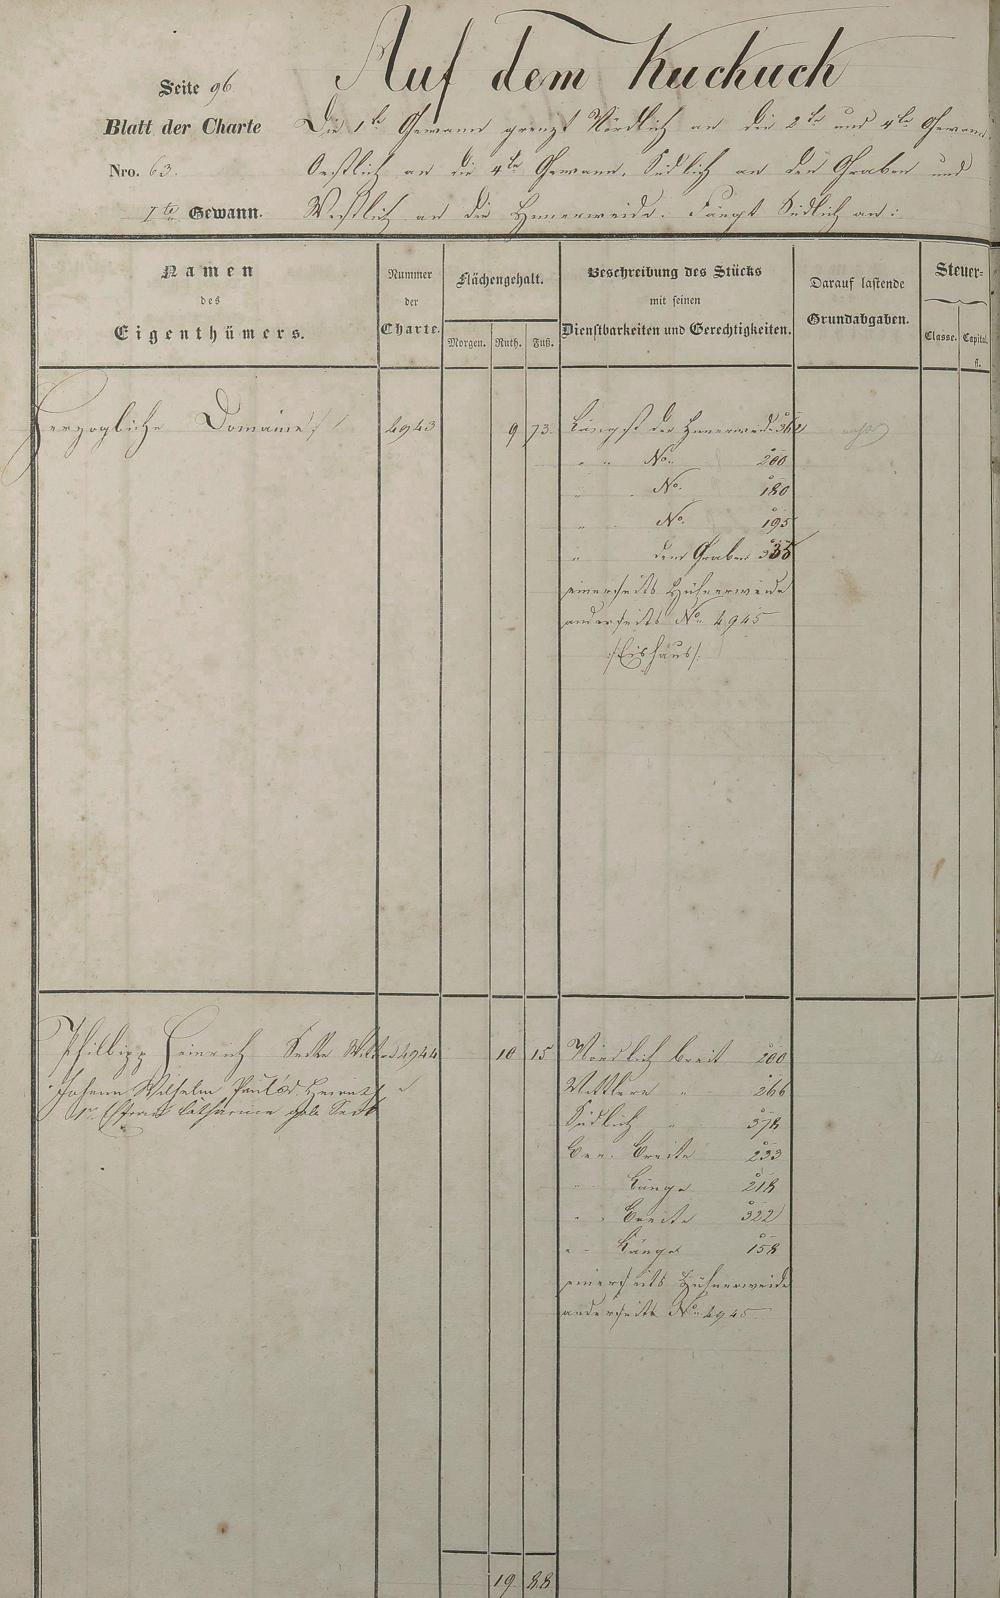 Auf dem Kuckuck
Seite 96
Blatt der Charte
Nro. 63.
1te Gewann.
Die 1te Gewann grenzt Nördlich an die 2te und 4te Gewann
Oestlich an die 4te Gewann, Südlich an den Graben und
Westlich an die Hunerweide. Fängt Südlich an:
Namen
des
Eigenthümers.
Nummer
der
Charte.
Flächengehalt.
Morgen. Ruth. Fuß.
Beschreibung des Stücks
mit seinen
Dienstbarkeiten und Gerechtigkeiten.
Darauf lastende
Grundabgaben.
Steuer-
Classe. Capital.
fl.
Herzogliche Domaine 4943 9 73. Längst der Hunerweide
" " No. 200
" " No. 180
" " No. 195
" dem Graben 335
einerseits Hühnerweide
anderseits No. 4945
/:Eishaus:/
Philipp Heinrich 4944 10 15 Nördlich breit 200
Johann Wilhelm Paul
Catharine geb.
" 266
Südlich " 378
Breite 233
" Länge 218
" " Breite 322
" " Länge 158
einerseits Hühnerweide
anderseits No. 4945
19 88